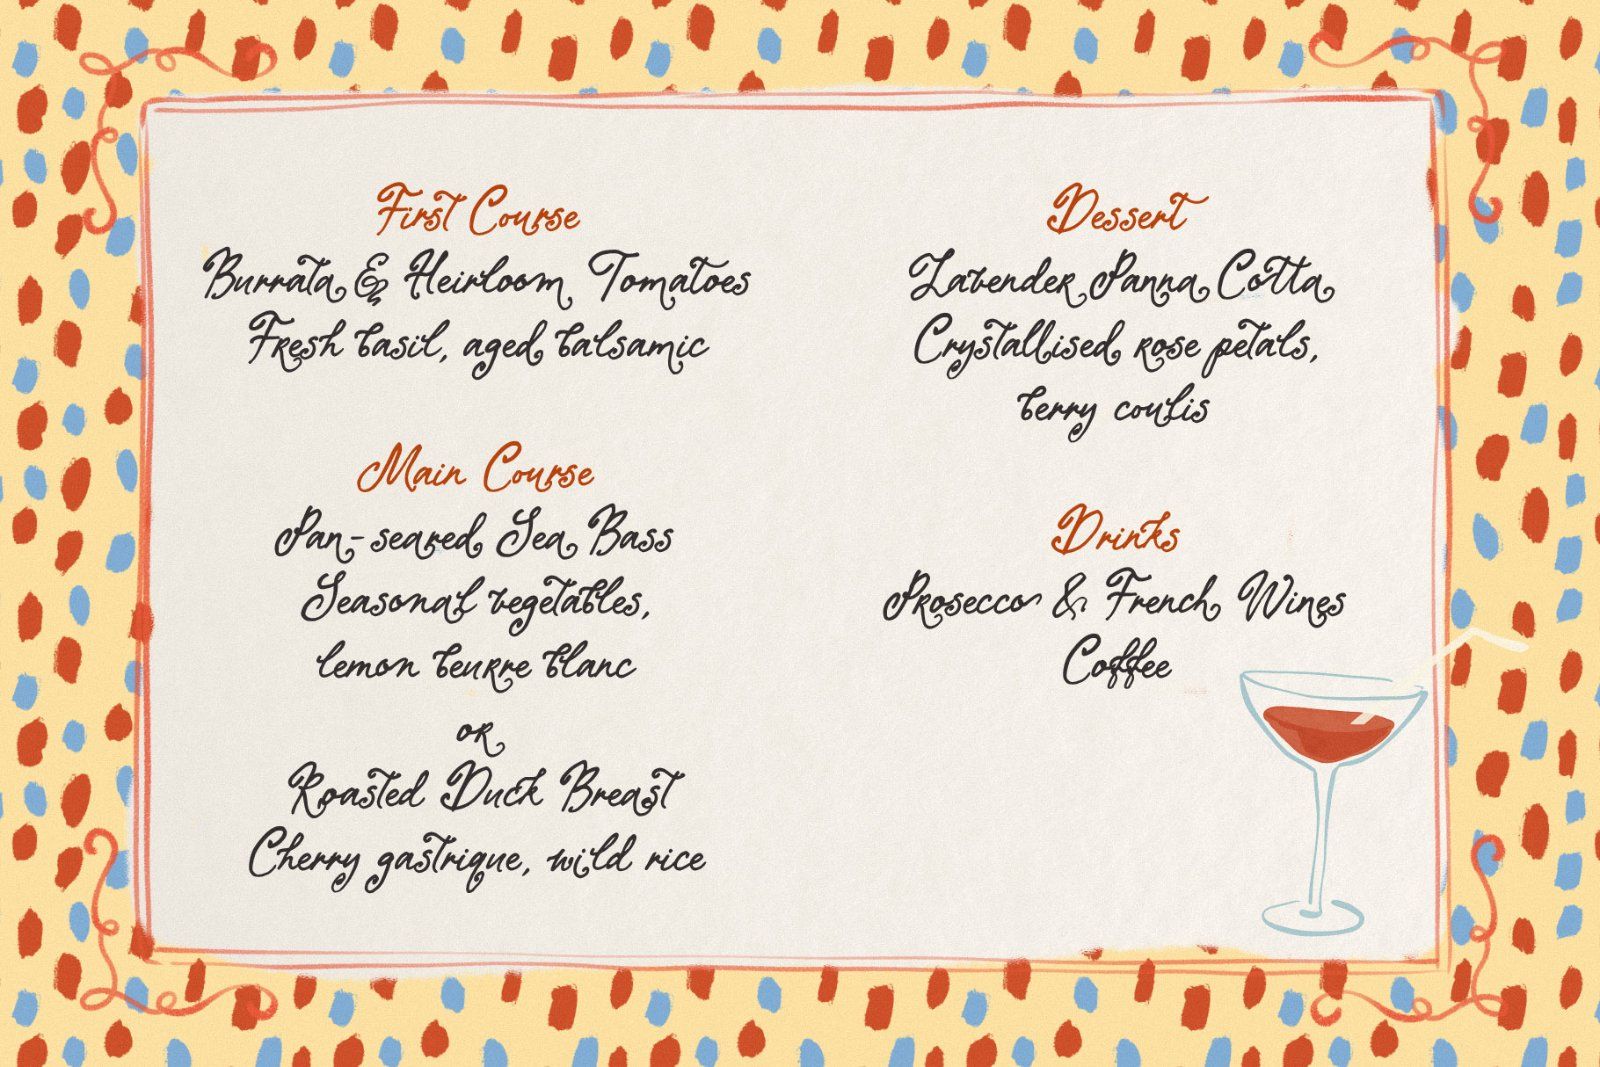 First Course
Burrata & Heirloom Tomatoes
Fresh basil, aged balsamic
Main Course
Pan-seared Sea Bass
Seasonal vegetables,
lemon beurre blanc
or
Roasted Duck Breast
Cherry gastrique, wild rice
Dessert
Lavender Panna Cotta
Crystallised rose petals,
berry coulis
Drinks
Prosecco & French Wines
Coffee